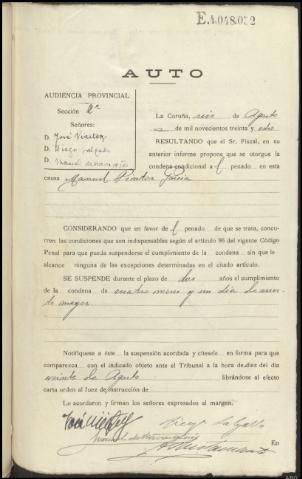 E.4.048.032
AUTO
AUDIENCIA PROVINCIAL
Sección 2ª
Señores:
D. José
D. Diego Salgado
D.
La Coruña, seis de Agosto
de mil novecientos treinta y ocho
RESULTANDO que el Sr. Fiscal, en su
anterior informe propone que se otorgue la
condena condicional al penado en esta
causa Manuel García
CONSIDERANDO que en favor del penado de que se trata, concu-
rren las condiciones que son indispensables según el artículo 98 del vigente Código
Penal para que pueda suspenderse el cumplimiento de la condena sin que le
alcance ninguna de las excepciones determinadas en el citado artículo.
SE SUSPENDE durante el plazo de dos años el cumplimiento
de la condena de cuatro meses y un día de arres-
to mayor
Notifíquese a éste la suspensión acordada y cítesele en forma para que
comparezca con el indicado objeto ante el Tribunal a la hora de diez del día
veinte de Agosto librándose al efecto
carta orden al Juez de instrucción de
Lo acordaron y firman los señores expresados al margen.
Diego Salgado
En